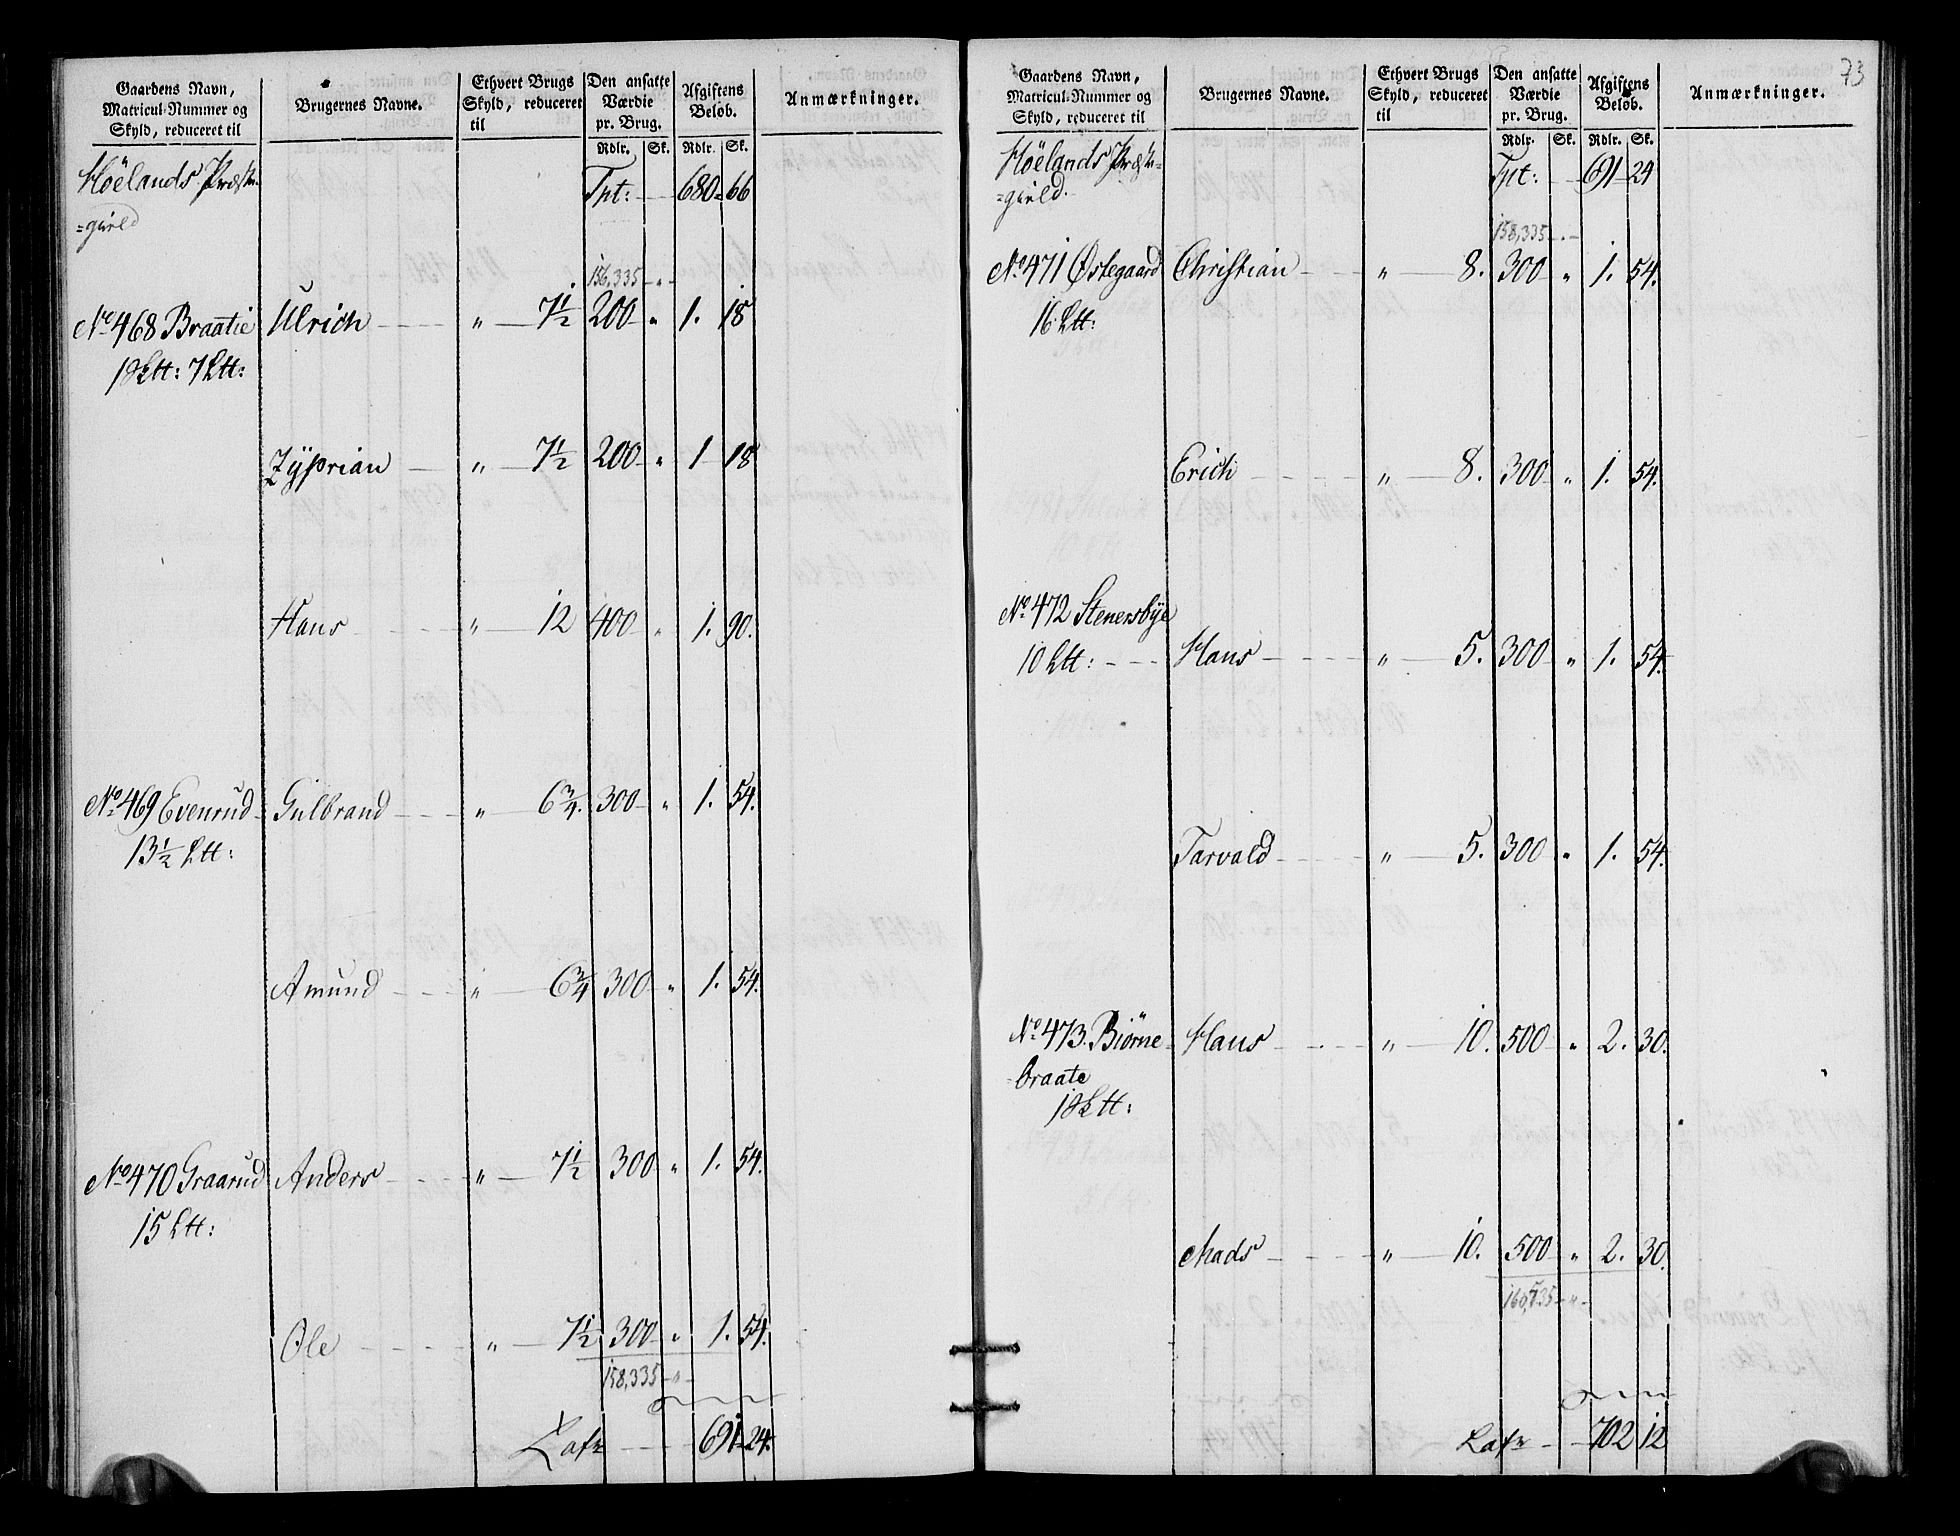 Gaardens Navn, Matricul-Nummer og Skyld, reduceret til | Brugernes Navne. | Ethvert Brugs Skyld, reduceret til | Den ansatte Værdie pr. Brug. | Afgiftens Beløb. | Anmærkninger.
Rdlr. | Sk. | Rdlr. | Sk.
Höelands Præste- Tpt: 680 66
=gield
156,335 "
No 468 Braatie Ulrich " 7½ 200 " 1. 18
1 Sktt: 7 Ltt:
Zyprian " 7½ 200 " 1 18
Hans " 12 400 " 1. 90.
No 469 Evenrud Gulbrand " 6¾. 300 " 1. 54.
13½ Ltt:
Amund " 6¾ 300 " 1. 54.
No 470 Graarud Anders " 7½ 300 " 1. 54.
15 Ltt:
Ole " 7½ 300 " 1. 54.
158,335 "
Lats 691 24.
73
Gaardens Navn, Matricul-Nummer og Skyld, reduceret til | Brugernes Navne. | Ethvert Brugs Skyld, reduceret til | Den ansatte Værdie pr. Brug. | Afgiftens Beløb. | Anmærkninger.
Rdlr. | Sk. | Rdlr. | Sk.
Höelands Præste= Tpt: 691 24
=gield.
158,335 -
No 471 Østegaard Christian " 8. 300 " 1. 54.
16 Ltt:
Erich " 8. 300 " 1. 54.
No 472 Stenersbye
10 Ltt: Hans " 5. 300 " 1. 54.
Tarvald " 5. 300 " 1. 54.
No 473. Biørne- Hans " 10. 500 " 2. 30.
=braate
1 Sktt:
Mads " 10. 500 " 2. 30.
Lats 702 12